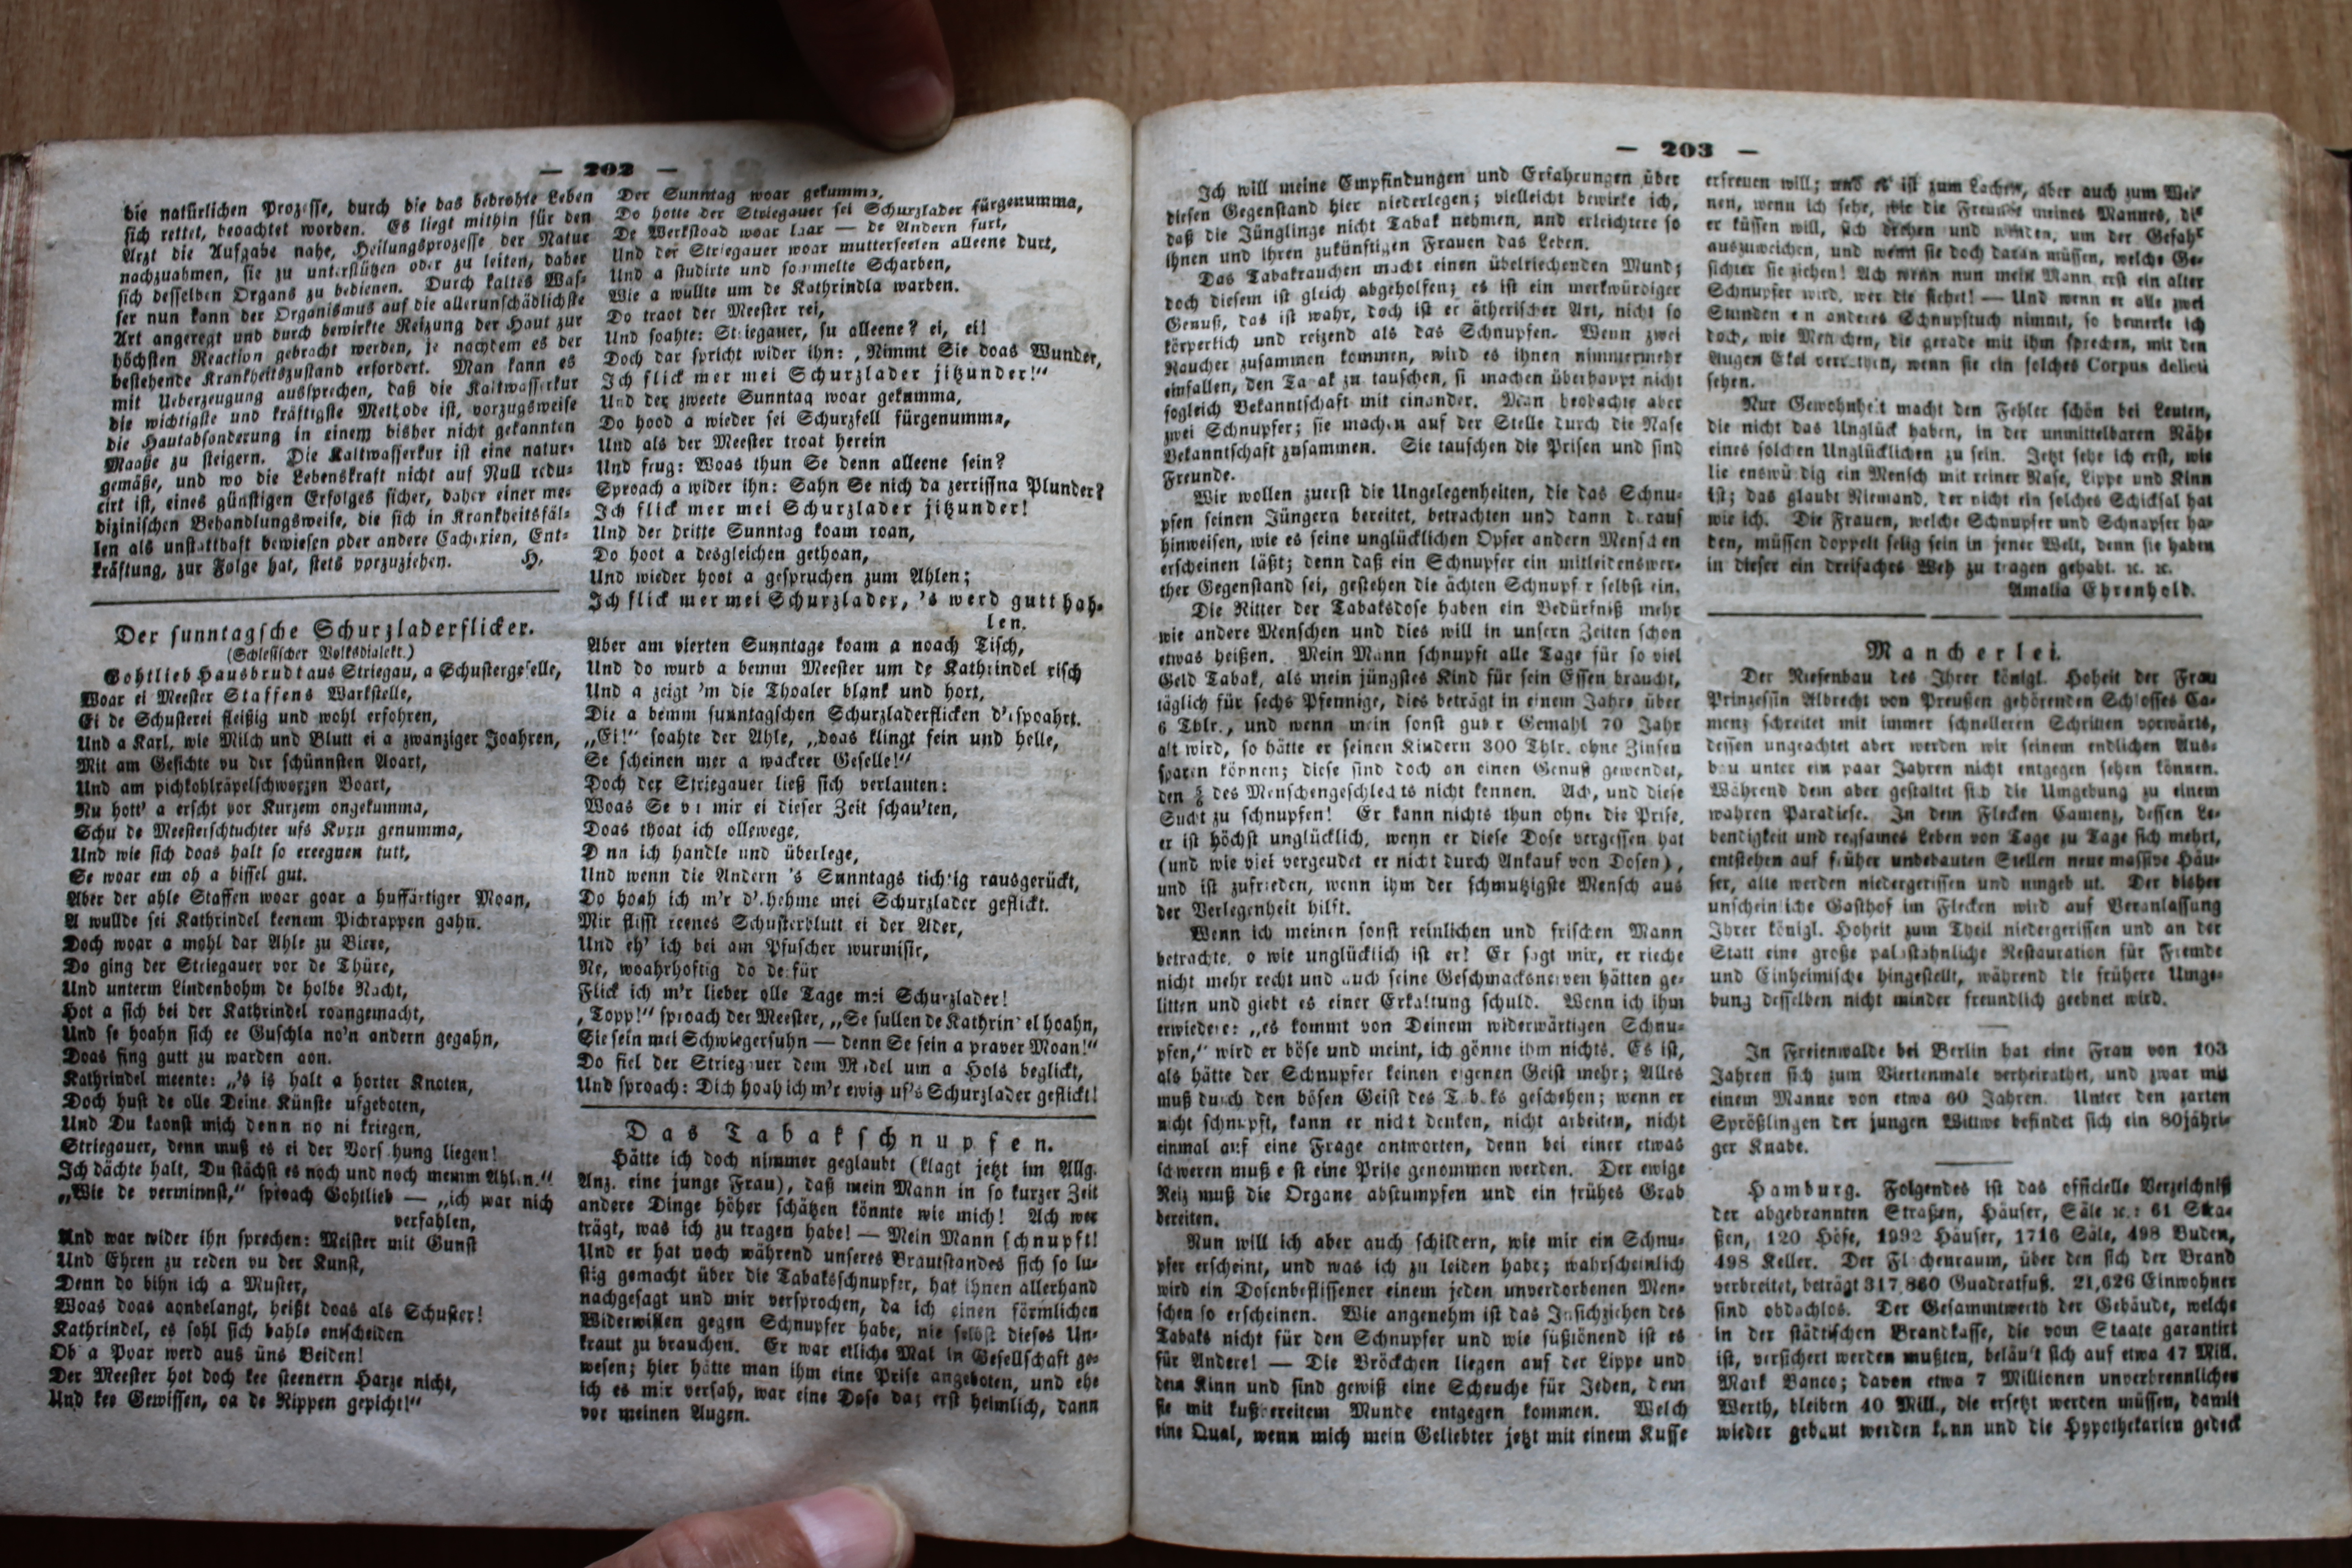 — 202 —
die natürlichen Prozesse, durch die das bedrohte Leben
sich rettet, beobachtet worden. Es liegt mithin für den
Arzt die Aufgabe nahe, Heilungsprozesse der Natur
nachzuahmen, sie zu unterstützen oder zu leiten, daher
sich desselben Organs zu bedienen. Durch kaltes Was-
ser nun kann der Organismus auf die allerunschädlichste
Art angeregt und durch bewirkte Reizung der Haut zur
höchsten Reaction gebracht werden, je nachdem es der
bestehende Krankheitszustand erfordert. Man kann es
mit Ueberzeugung aussprechen, daß die Kaltwasserkur
die wichtigste und kräftigste Methode ist, vorzugsweise
die Hautabsonderung in einem bisher nicht gekannten
Maaße zu steigern. Die Kaltwasserkur ist eine natur-
gemäße, und wo die Lebenskraft nicht auf Null redu-
cirt ist, eines günstigen Erfolges sicher, daher einer me-
dizinischen Behandlungsweise, die sich in Krankheitsfäl-
len als unstatthaft bewiesen oder andere Cacherien, Ent-
kräftung, zur Folge hat, stets vorzuziehen. H.
Der sunntagsche Schurzladerflicker.
(Schlesischer Volksdialekt.)
Gohtlieb Hausbrudt aus Striegau, a Schustergeselle,
Woar ei Meester Staffens Warkstelle,
Ei de Schusterei fleißig und wohl erfohren,
Und a Karl, wie Milch und Blutt ei a zwanziger Joahren,
Mit am Gesichte vu der schünnsten Aoart,
Und am pichkohlräpelschworzen Boart,
Nu hott' a erscht vor Kurzem ongekumma,
Schu de Meesterschtuchter ufs Kurn genumma,
Und wie sich doas halt so ereegnen tutt,
Se woar em oh a bissel gut.
Aber der ahle Staffen woar goar a huffärtiger Moan,
A wullde sei Kathrindel keenem Pichrappen gahn.
Doch woar a mohl dar Ahle zu Biere,
Do ging der Striegauer vor de Thüre,
Und unterm Lindenbohm de holbe Nacht,
Hot a sich bei der Kathrindel roangemacht,
Und se hoahn sich ee Guschla no'n andern gegahn,
Doas fing gutt zu warden aon.
Kathrindel meente: „'s is halt a horter Knoten,
Doch hust de olle Deine Künste ufgeboten,
Und Du kaonst mich denn no ni kriegen,
Striegauer, denn muß es ei der Vorsehung liegen!
Ich dächte halt, Du stächst es noch und noch memm Ahlen.“
„Wie de verminnst,“ sproach Gohtlieb — „ich war nich
verfahlen,
Und war wider ihn sprechen: Meister mit Gunst
Und Ehren zu reden vu der Kunst,
Denn do bihn ich a Muster,
Woas doas aonbelangt, heißt doas als Schuster!
Kathrindel, es sohl sich bahle entscheiden
Ob a Poar werd aus üns Beiden!
Der Meester hot doch kee steenern Harze nicht,
Und kee Gewissen, oa de Rippen gepicht!“
Der Sunntag woar gekumma,
Do hotte der Striegauer sei Schurzlader fürgenumma,
De Werkstoad woar laar — de Andern furt,
Und der Striegauer woar mutterseelen alleene durt,
Und a studirte und sommelte Scharben,
Wie a wullte um de Kathrindla warben.
Do traot der Meester rei,
Und soahte: Striegauer, su alleene? ei, ei!
Doch dar spricht wider ihn: „Nimmt Sie doas Wunder,
Ich flick mer mei Schurzlader jitzunder!“
Und der zweete Sunntag woar gekumma,
Do hood a wieder sei Schurzfell fürgenumma,
Und als der Meester troat herein
Und frug: Woas thun Se denn alleene sein?
Sproach a wider ihn: Sahn Se nich da zerrissna Plunder?
Ich flick mer mei Schurzlader jitzunder!
Und der dritte Sunntag koam roan,
Do hoot a desgleichen gethoan,
Und wieder hoot a gespruchen zum Ahlen;
Ich flick mer mei Schurzlader, 's werd gutt hah-
len.
Aber am vierten Sunntage koam a noach Tisch,
Und do wurb a bemm Meester um de Kathrindel risch
Und a zeigt 'm die Thoaler blank und hort,
Die a bemm sunntagschen Schurzladerflicken d'erspoahrt.
„Ei!“ soahte der Ahle, „doas klingt fein und helle,
Se scheinen mer a wackrer Geselle!“
Doch der Striegauer ließ sich verlauten:
Woas Se vu mir ei dieser Zeit schau'ten,
Doas thoat ich ollewege,
Denn ich handle und überlege,
Und wenn die Andern 's Sunntags tichtig rausgerückt,
Do hoah ich m'r d'rheeme mei Schurzlader geflickt.
Mir flisst reenes Schusterblutt ei der Ader,
Und eh' ich bei am Pfuscher wurmisir,
Ne, woahrhoftig do defür
Flick ich m'r lieber olle Tage mei Schurzlader!
„Topp!“ sproach der Meester, „Se sullen de Kathrindel hoahn,
Sie sein mei Schwiegersuhn — denn Se sein a praver Moan!“
Do fiel der Striegauer dem Madel um a Hols beglickt,
Und sproach: Dich hoah ich m'r ewig uf's Schurzlader geflickt!
Das Tabakschnupfen.
Hätte ich doch nimmer geglaubt (klagt jetzt im Allg.
Anz. eine junge Frau), daß mein Mann in so kurzer Zeit
andere Dinge höher schätzen könnte wie mich! Ach wer
trägt, was ich zu tragen habe! — Mein Mann schnupft!
Und er hat noch während unseres Brautstandes sich so lu-
stig gemacht über die Tabaksschnupfer, hat ihnen allerhand
nachgesagt und mir versprochen, da ich einen förmlichen
Widerwillen gegen Schnupfer habe, nie selbst dieses Un-
kraut zu brauchen. Er war etliche Mal in Gesellschaft ge-
wesen; hier hatte man ihm eine Prise angeboten, und ehe
ich es mir versah, war eine Dose da; erst heimlich, dann
vor meinen Augen.
— 203 —
Ich will meine Empfindungen und Erfahrungen über
diesen Gegenstand hier niederlegen; vielleicht bewirke ich,
daß die Jünglinge nicht Tabak nehmen, und erleichtere so
ihnen und ihren zukünftigen Frauen das Leben.
Das Tabakrauchen macht einen übelriechenden Mund;
doch diesem ist gleich abgeholfen; es ist ein merkwürdiger
Genuß, das ist wahr, doch ist er ätherischer Art, nicht so
körperlich und reizend als das Schnupfen. Wenn zwei
Raucher zusammen kommen, wird es ihnen nimmermehr
einfallen, den Tabak zu tauschen, sie machen überhaupt nicht
sogleich Bekanntschaft mit einander. Man beobachte aber
zwei Schnupfer; sie machen auf der Stelle durch die Nase
Bekanntschaft zusammen. Sie tauschen die Prisen und sind
Freunde.
Wir wollen zuerst die Ungelegenheiten, die das Schnu-
pfen seinen Jüngern bereitet, betrachten und dann darauf
hinweisen, wie es seine unglücklichen Opfer andern Menschen
erscheinen läßt; denn daß ein Schnupfer ein mitleidenswer-
ther Gegenstand sei, gestehen die ächten Schnupfer selbst ein.
Die Ritter der Tabaksdose haben ein Bedürfniß mehr
wie andere Menschen und dies will in unsern Zeiten schon
etwas heißen. Mein Mann schnupft alle Tage für so viel
Geld Tabak, als mein jüngstes Kind für sein Essen braucht,
täglich für sechs Pfennige, dies beträgt in einem Jahre über
6 Thlr., und wenn mein sonst guter Gemahl 70 Jahr
alt wird, so hätte er seinen Kindern 300 Thlr. ohne Zinsen
sparen können; diese sind doch an einen Genuß gewendet,
den des Menschengeschlechts nicht kennen. Ach, und diese
Sucht zu schnupfen! Er kann nichts thun ohne die Prise,
er ist höchst unglücklich, wenn er diese Dose vergessen hat
(und wie viel vergeudet er nicht durch Ankauf von Dosen),
und ist zufrieden, wenn ihm der schmutzigste Mensch aus
der Verlegenheit hilft.
Wenn ich meinen sonst reinlichen und frischen Mann
betrachte, o wie unglücklich ist er! Er sagt mir, er rieche
nicht mehr recht und auch seine Geschmacksnerven hätten ge-
litten und giebt es einer Erkaltung schuld. Wenn ich ihm
erwiedere: „es kommt von Deinem widerwärtigen Schnu-
pfen,“ wird er böse und meint, ich gönne ihm nichts. Es ist,
als hätte der Schnupfer keinen eigenen Geist mehr; Alles
muß durch den bösen Geist des Tabaks geschehen; wenn er
nicht schnupft, kann er nicht denken, nicht arbeiten, nicht
einmal auf eine Frage antworten, denn bei einer etwas
schweren muß erst eine Prise genommen werden. Der ewige
Reiz muß die Organe abstumpfen und ein frühes Grab
bereiten.
Nun will ich aber auch schildern, wie mir ein Schnu-
pfer erscheint, und was ich zu leiden habe; wahrscheinlich
wird ein Dosenbeflissener einem jeden unverdorbenen Men-
schen so erscheinen. Wie angenehm ist das Insichziehen des
Tabaks nicht für den Schnupfer und wie süßtönend ist es
für Andere! — Die Bröckchen liegen auf der Lippe und
dem Kinn und sind gewiß eine Scheuche für Jeden, dem
sie mit kußbereitem Munde entgegen kommen. Welch
eine Qual, wenn mich mein Geliebter jetzt mit einem Kusse
erfreuen will; und es ist zum Lachen, aber auch zum Wei-
nen, wenn ich sehe, wie die Freunde meines Mannes, die
er küssen will, sich drehen und winden, um der Gefahr
auszuweichen, und wenn sie doch daran müssen, welche Ge-
sichter sie ziehen! Ach wenn nun mein Mann erst ein alter
Schnupfer wird, wer die siehet! — Und wenn er alle zwei
Stunden ein anderes Schnupftuch nimmt, so bemerke ich
doch, wie Menschen, die gerade mit ihm sprechen, mit den
Augen Ekel verrathen, wenn sie ein solches Corpus delicti
sehen.
Nur Gewohnheit macht den Fehler schön bei Leuten,
die nicht das Unglück haben, in der unmittelbaren Nähe
eines solchen Unglücklichen zu sein. Jetzt sehe ich erst, wie
liebenswürdig ein Mensch mit reiner Nase, Lippe und Kinn
ist; das glaubt Niemand, der nicht ein solches Schicksal hat
wie ich. Die Frauen, welche Schnupfer und Schnapser ha-
ben, müssen doppelt selig sein in jener Welt, denn sie haben
in dieser ein dreifaches Weh zu tragen gehabt. ꝛc. ꝛc.
Amalia Ehrenhold.
Mancherlei.
Der Riesenbau des Ihrer königl. Hoheit der Frau
Prinzessin Albrecht von Preußen gehörenden Schlosses Ca-
menz schreitet mit immer schnelleren Schritten vorwärts,
dessen ungeachtet aber werden wir seinem endlichen Aus-
bau unter ein paar Jahren nicht entgegen sehen können.
Während dem aber gestaltet sich die Umgebung zu einem
wahren Paradiese. In dem Flecken Camenz, dessen Le-
bendigkeit und regsames Leben von Tage zu Tage sich mehrt,
entstehen auf früher unbebauten Stellen neue massive Häu-
ser, alte werden niedergerissen und umgebaut. Der bisher
unscheinliche Gasthof im Flecken wird auf Veranlassung
Ihrer königl. Hoheit zum Theil niedergerissen und an der
Statt eine große palastähnliche Restauration für Fremde
und Einheimische hingestellt, während die frühere Umge-
bung desselben nicht minder freundlich geebnet wird.
In Freienwalde bei Berlin hat eine Frau von 103
Jahren sich zum Viertenmale verheirathet, und zwar mit
einem Manne von etwa 60 Jahren. Unter den zarten
Sprößlingen der jungen Wittwe befindet sich ein 80jähri-
ger Knabe.
Hamburg. Folgendes ist das officielle Verzeichniß
der abgebrannten Straßen, Häuser, Säle ꝛc.: 61 Stra-
ßen, 120 Höfe, 1992 Häuser, 1716 Säle, 498 Buden,
498 Keller. Der Flächenraum, über den sich der Brand
verbreitet, beträgt 317,860 Quadratfuß. 21,626 Einwohner
sind obdachlos. Der Gesammtwerth der Gebäude, welche
in der städtischen Brandkasse, die vom Staate garantirt
ist, versichert werden mußten, beläuft sich auf etwa 47 Mill.
Mark Banco; davon etwa 7 Millionen unverbrennlicher
Werth, bleiben 40 Mill., die ersetzt werden müssen, damit
wieder gebaut werden kann und die Hypothekarien gedeckt